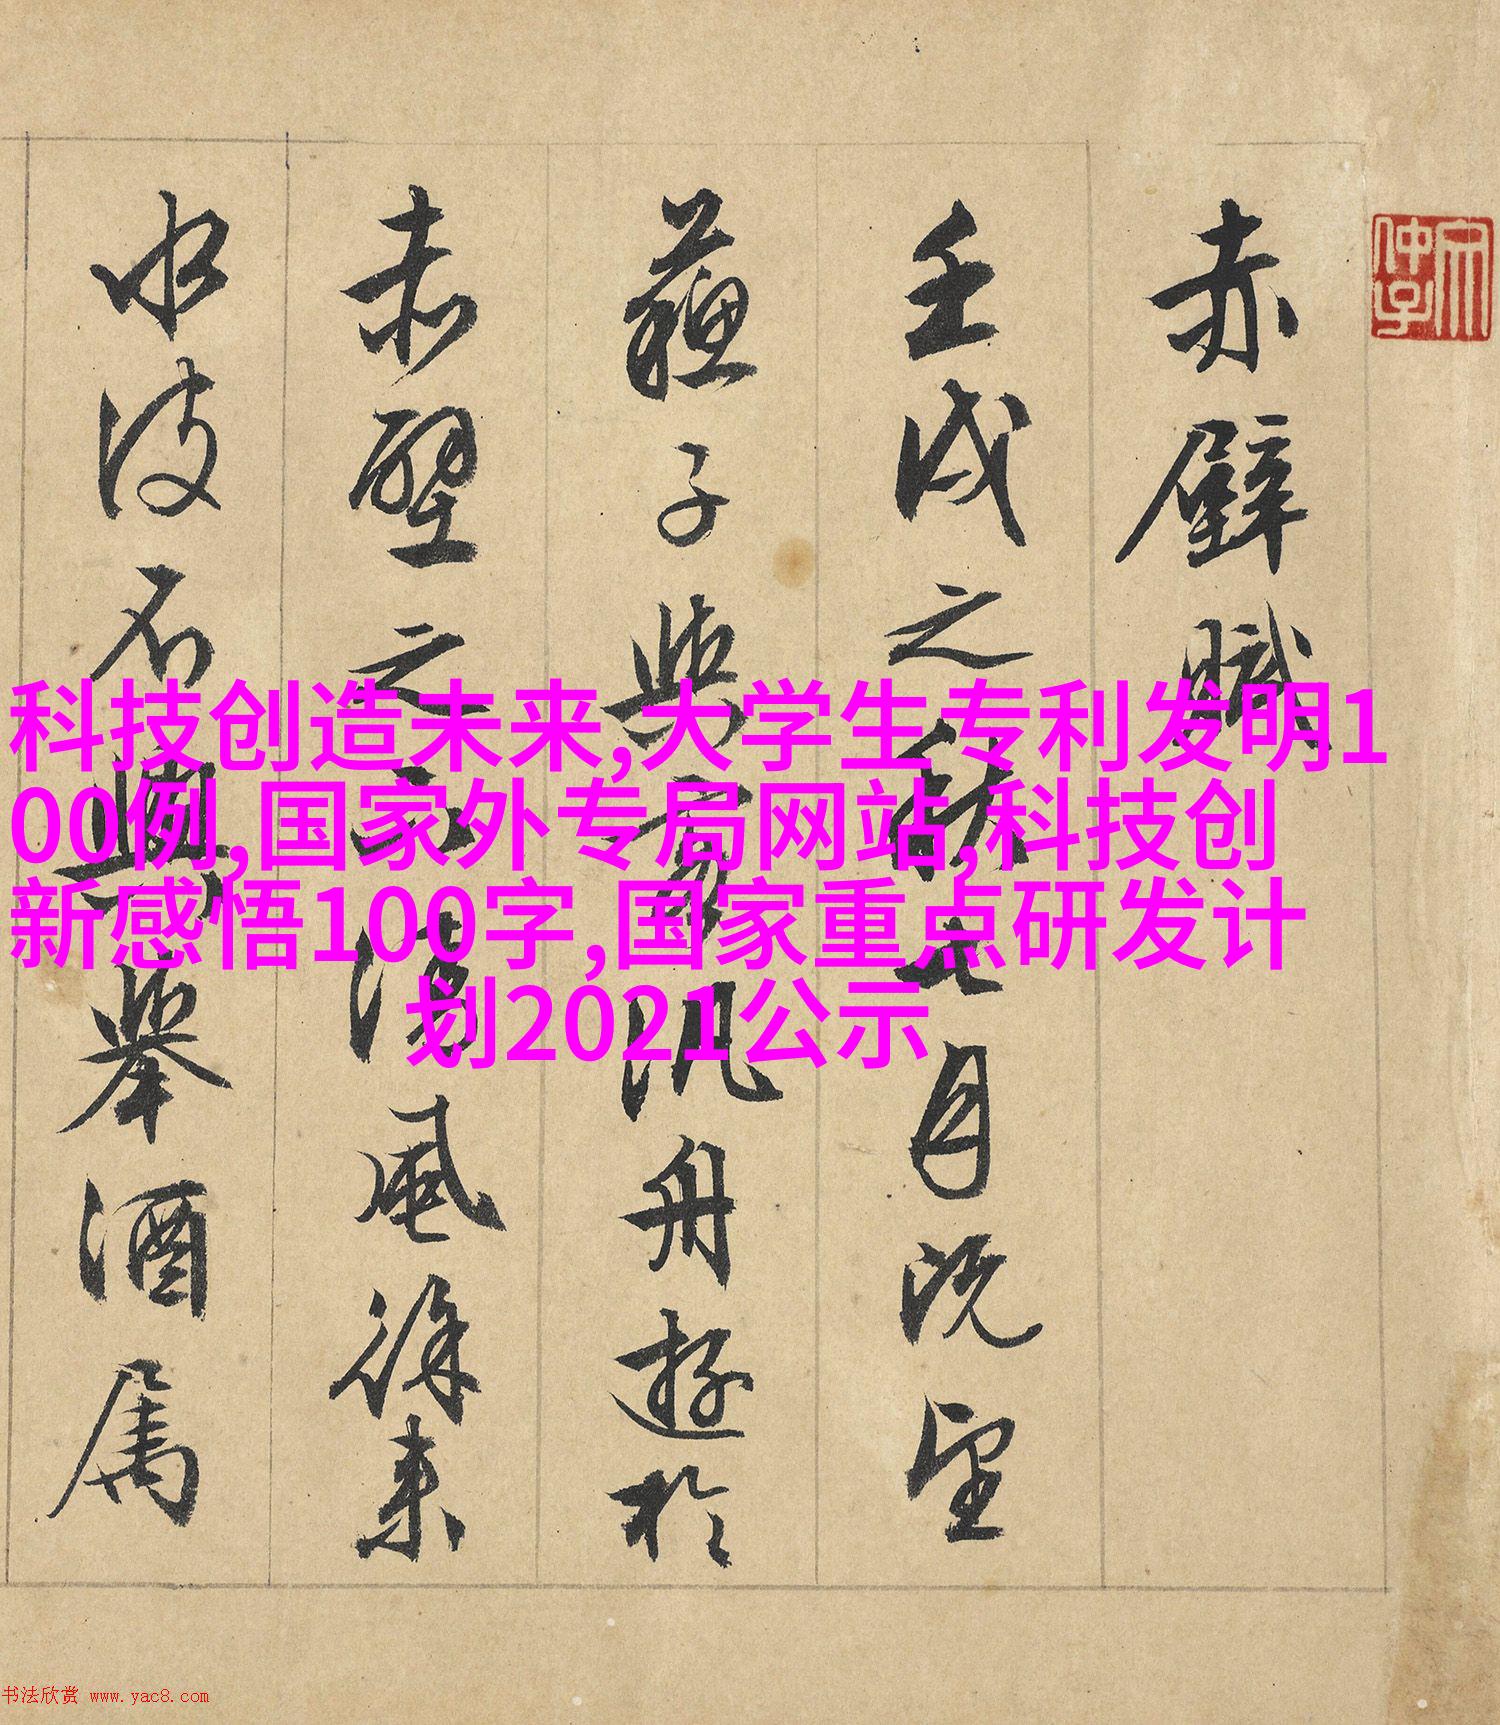 赤壁賦
壬戌之秋七月既望
蘇子與客汎舟遊於
赤壁之下清風徐来
水波不興舉酒属
科技创造未来,大学生专利发明1
00例,国家外专局网站,科技创
新感悟100字,国家重点研发计
划2021公示
书法欣赏 www.yac8.com